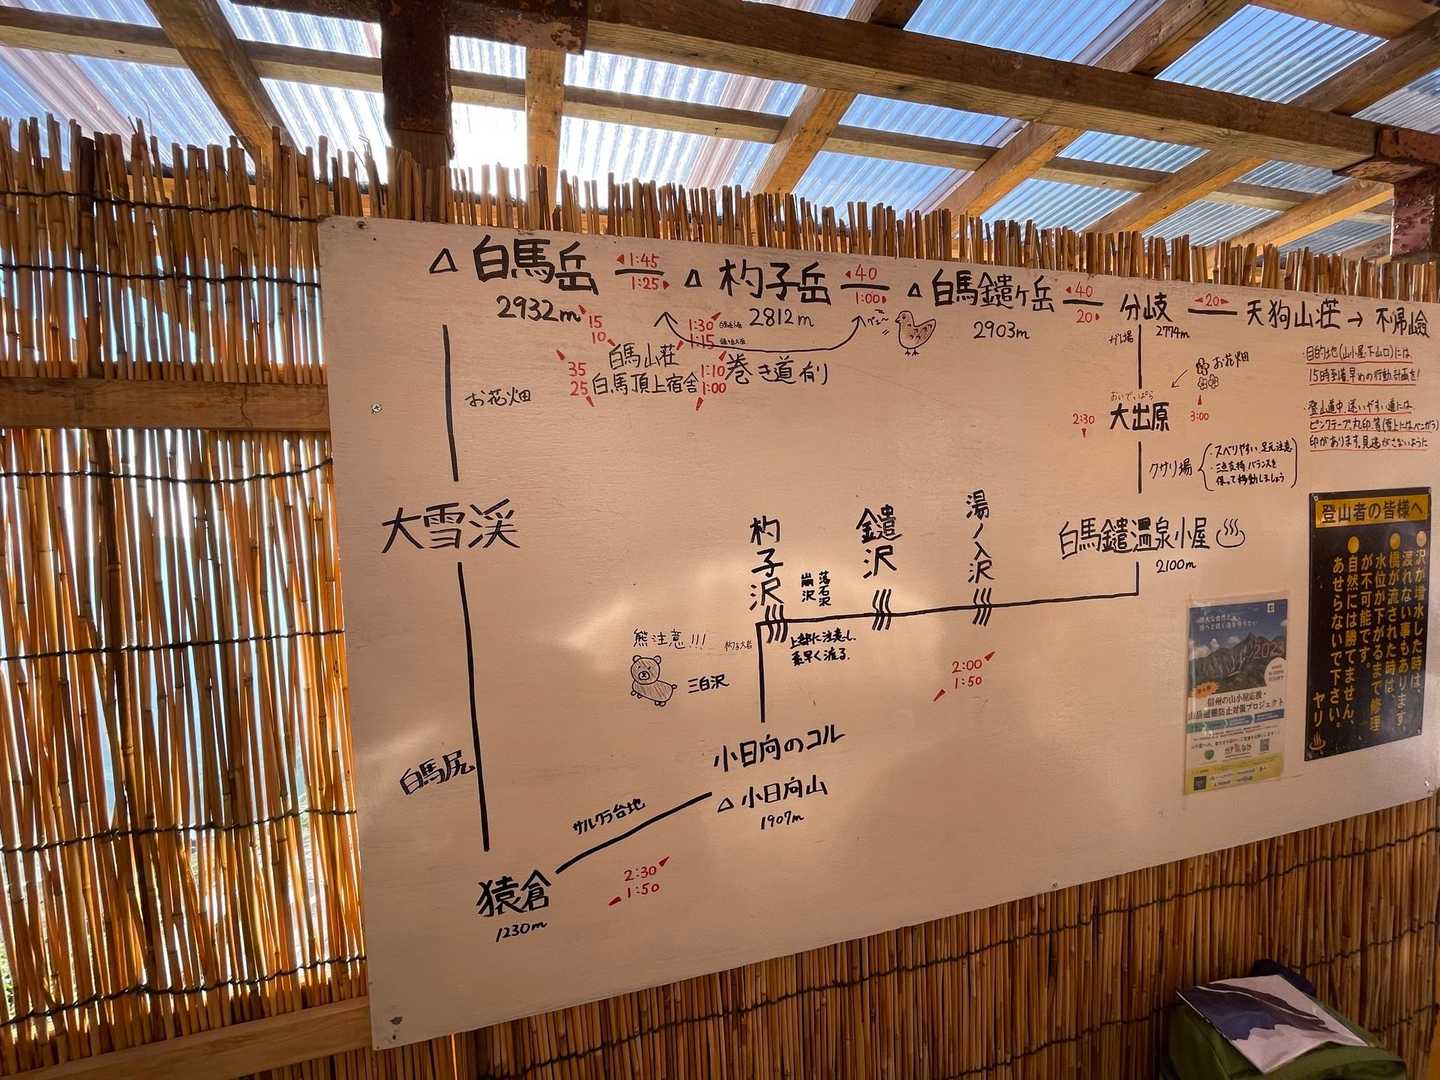 △ 白馬岳
2932m
◀1:45
1:25▶
△ 杓子岳
2812m
◀40
1:00▶
△ 白馬鑓ヶ岳
2903m
◀40
20▶
分岐
2774m
◀20▶
天狗山荘 → 不帰嶮
15
10
白馬山荘
1:30
1:15
35
25
白馬頂上宿舎
1:10
1:00
巻き道有り
お花畑
ガレ場
お花畑
おいでっぱら
大出原
2:30
3:00
・目的地(山小屋・下山口)には
15時到着早めの行動計画を!
・登山道中、迷いやすい道には
ピンクテープ、丸印等(雪上にはベンガラ)
印があります。見逃がさないように
クサリ場
・スベりやすい 足元注意
・三点支持 バランスを
保って移動しましょう
大雪渓
杓子沢
崩沢
落石沢
鑓沢
湯ノ入沢
白馬鑓温泉小屋
2100m
上部に注意し
素早く渡る。
熊注意!!!
三白沢
2:00
1:50
小日向のコル
△ 小日向山
1907m
白馬尻
サルクラ台地
2:30
1:50
猿倉
1230m
登山者の皆様へ
沢が増水した時は、
渡れない事もあります。
橋が流された時は、
水位が下がるまで修理
が不可能です。
自然には勝てません。
あせらないで下さい。
ヤリ
2025
信州の山小屋応援・
山岳遭難防止対策プロジェクト